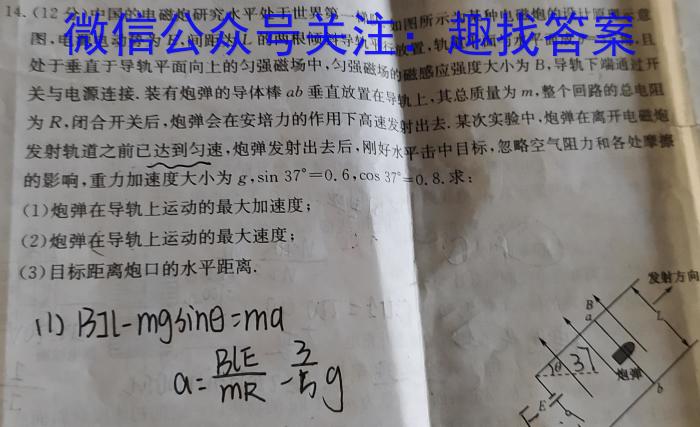 14.(12分)中国的电磁炮研究水平处于世界第一 如图所示 种电磁炮的设计原理示意
图,电 动势为 间距为L的两根倾 导轨平行放置,轨 且
微信公众号关注：趣找答案
处于垂直于导轨平面向上的匀强磁场中,匀强磁场的磁感应强度大小为B,导轨下端通过开
关与电源连接.装有炮弹的导体棒ab垂直放置在导轨上,其总质量为m,整个回路的总电阻
为R,闭合开关后,炮弹会在安培力的作用下高速发射出去.某次实验中,炮弹在离开电磁炮
发射轨道之前已达到匀速,炮弹发射出去后,刚好水平击中目标,忽略空气阻力和各处摩擦
的影响,重力加速度大小为g,sin 37°=0.6,cos 37°=0.8.求:
(1)炮弹在导轨上运动的最大加速度;
(2)炮弹在导轨上运动的最大速度;
(3)目标距离炮口的水平距离.
(1) BIl-mgsinθ=ma
a=BlE/mR-3/5g
发射方向
B
a
L
θ
37
炮弹
b
E